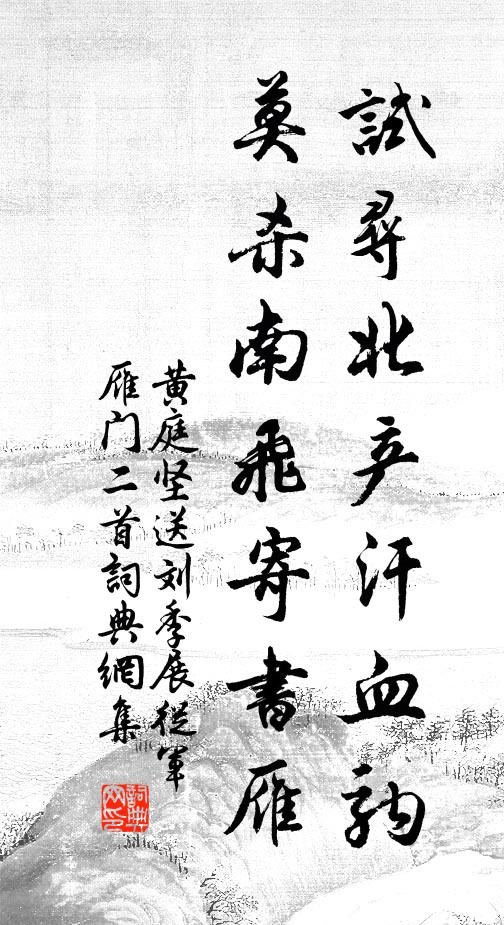 試尋北产汗血駒
莫杀南飛寄書雁
黄庭坚送刘季展從军
雁门二首詞典網集